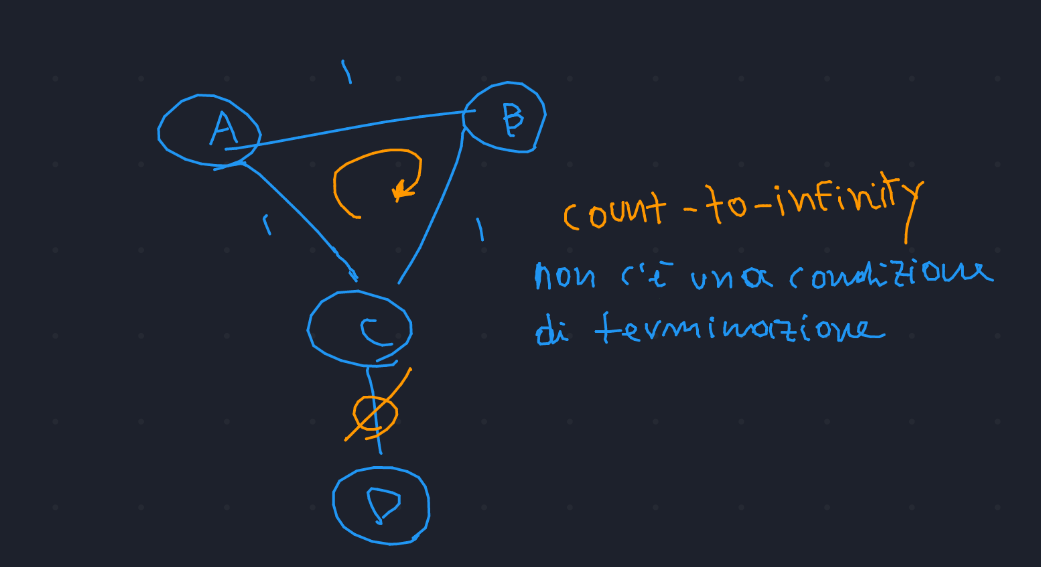 1
A
B
1
1
count-to-infinity
non c'è una condizione
di terminazione
C
D